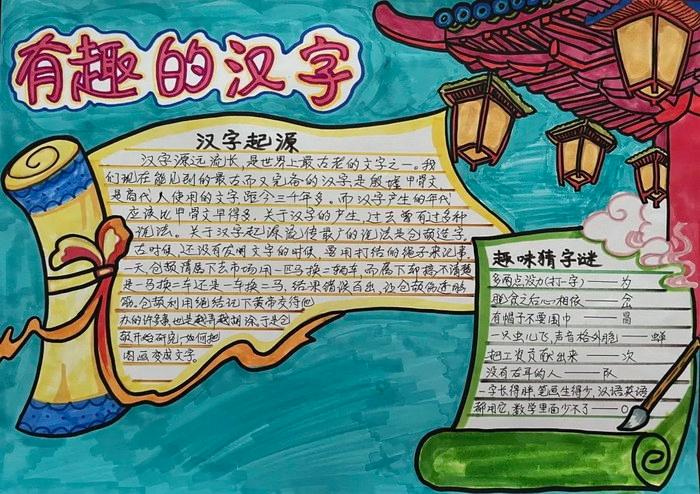 有趣的汉字
汉字起源
汉字源远流长,是世界上最古老的文字之一。我
们现在能见到的最古而又完备的汉字是殷墟甲骨文
是商代人使用的文字距今三千年多。而汉字产生的年代
应该比甲骨文早得多。关于汉字的产生,过去曾有过多种
说法。关于汉字起源说传最广的说法是仓颉造字。
古时候,还没有发明文字的时候,要用打结的绳子来记事
一天,仓颉清属下去市场用一匹马换二辆车,而属下却搞不清楚
是一马换二车还是一车换二马,结果错误百出,让仓颉伤透脑
筋。仓颉利用绳结记下黄帝交待他
办的许多事,也是越弄越胡涂,于是仓
颉开始研究如何把
图画变成文字。
趣味猜字谜
多两点没力(打一字)——为
饱食之后心相依——
有帽子不要围巾——冒
一只虫儿飞,声音格外脆——蝉
把工资贡献出来——次
没有右耳的人——队
一字长得胖,笔画生得少,汉语英语
都用它,数学里面少不了——O